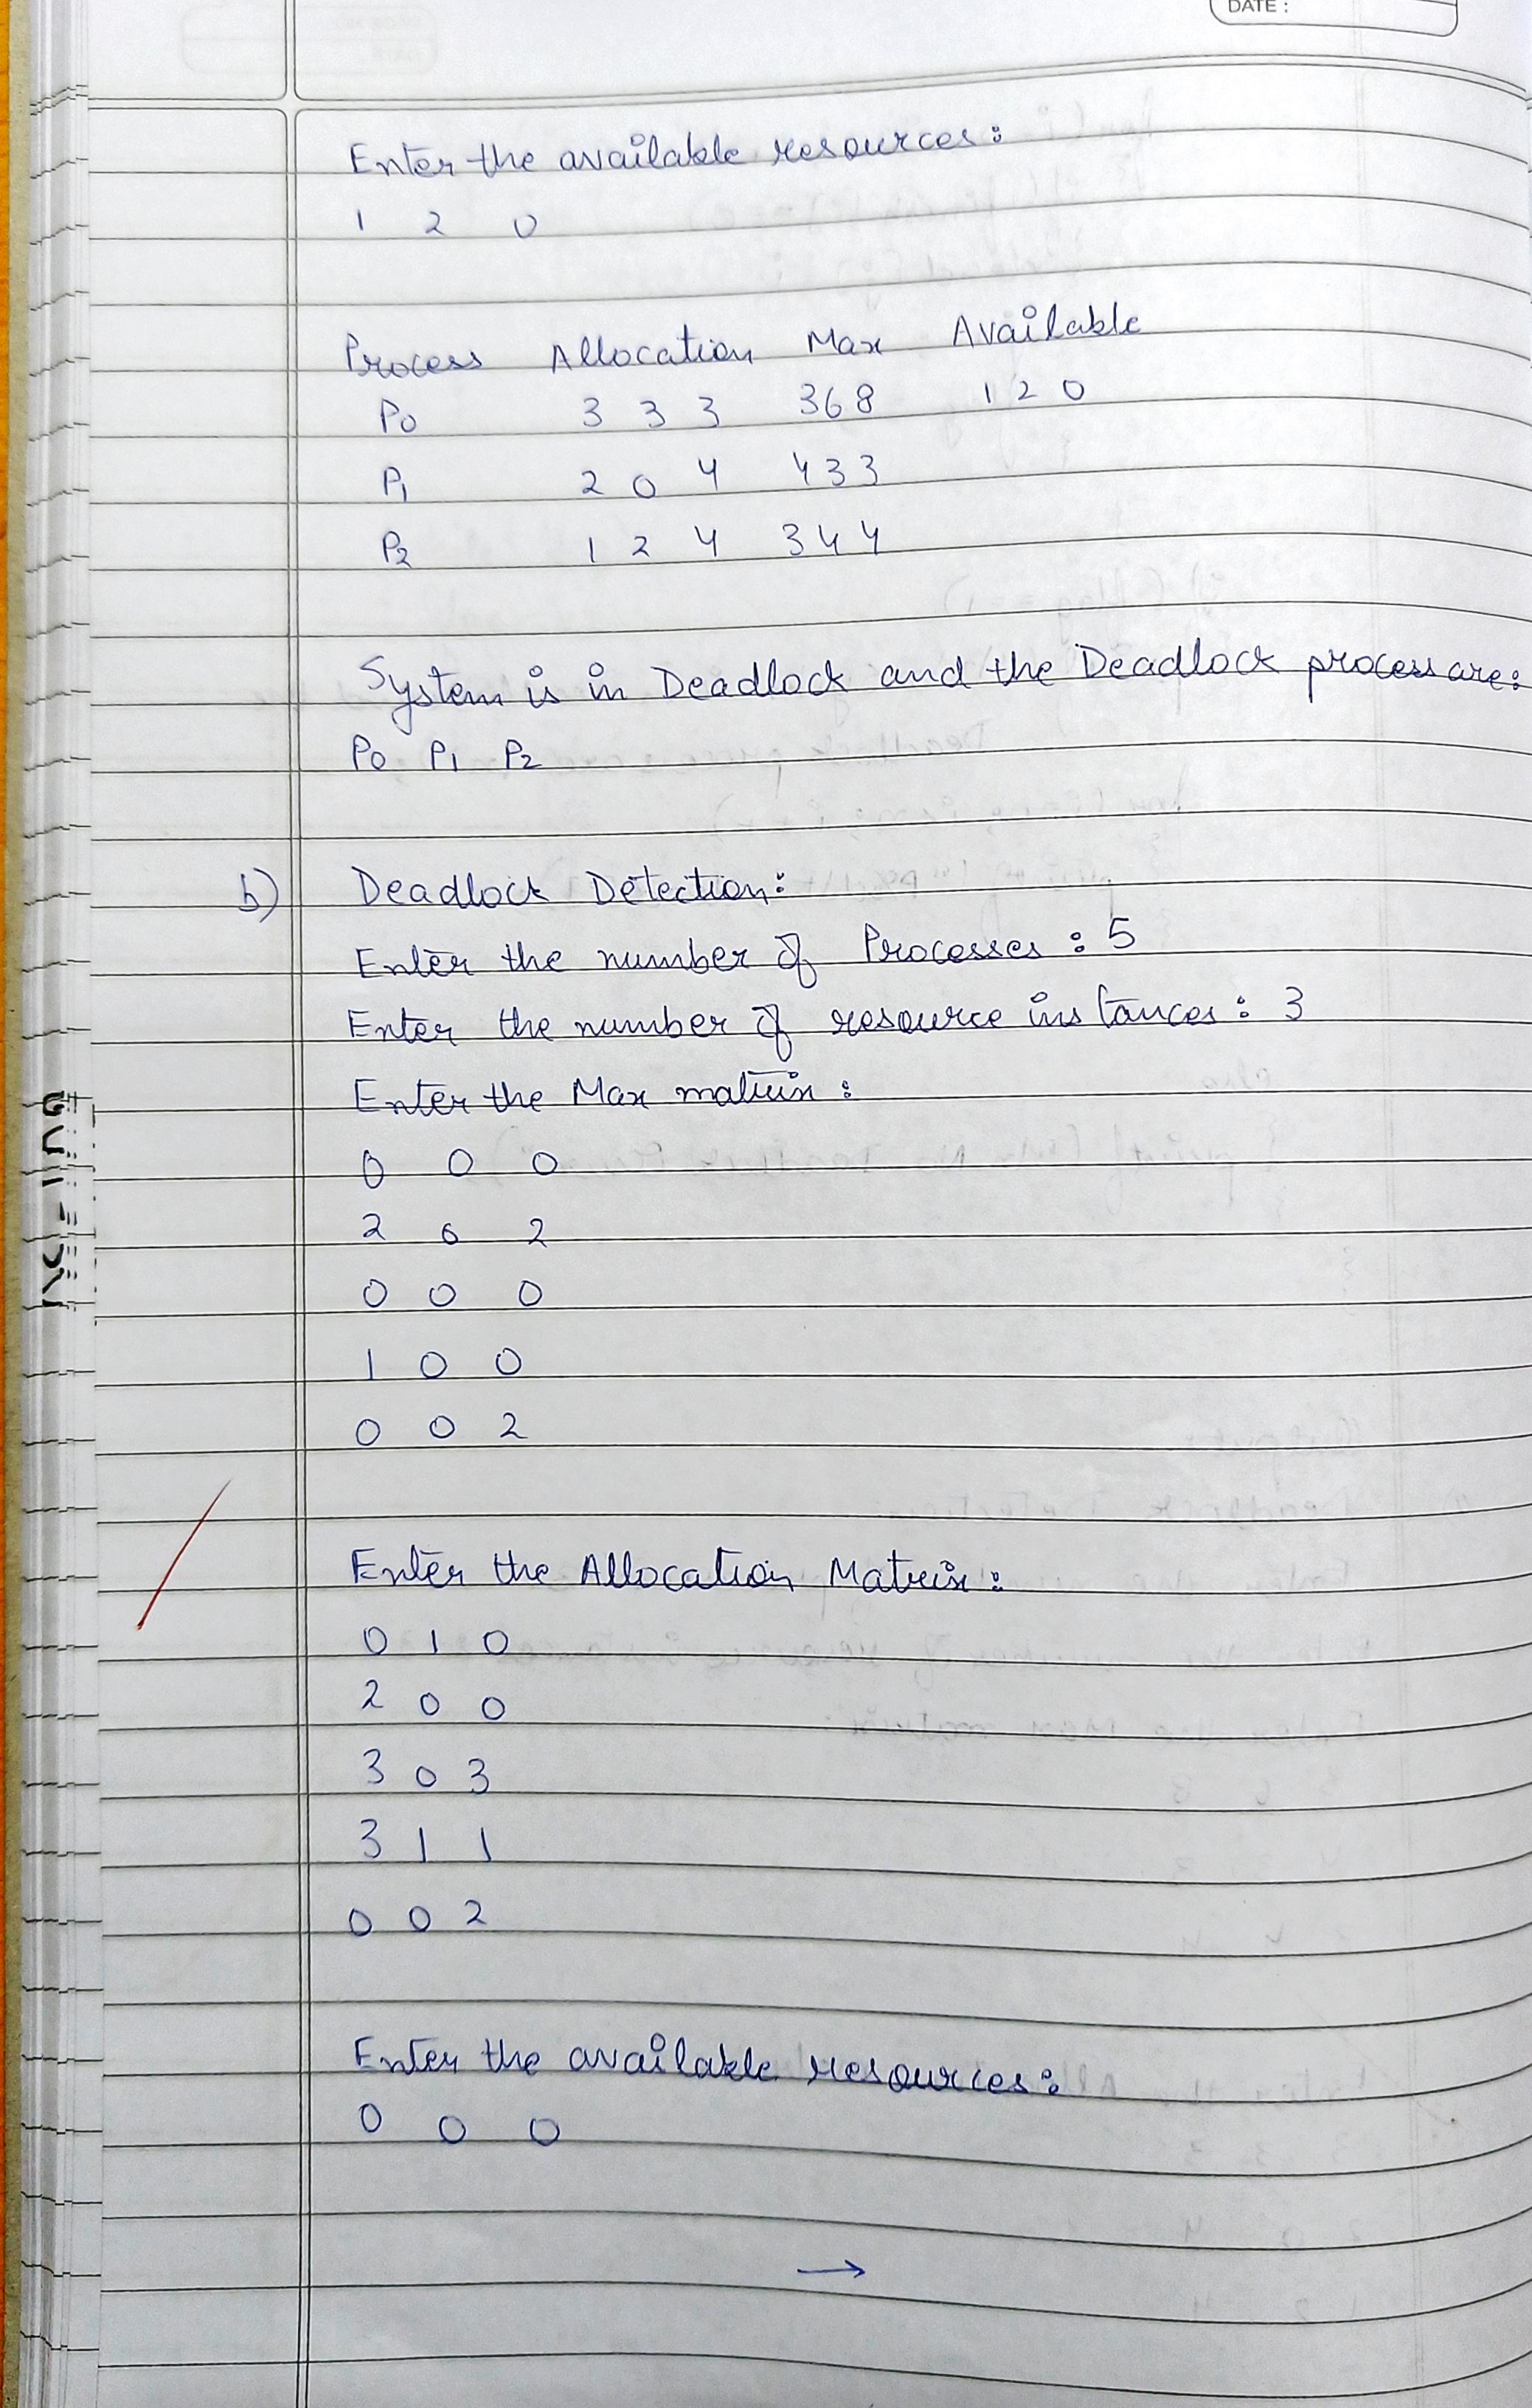 DATE :
Enter the available resources:
1 2 0
Process Allocation Max Available
P0 3 3 3 3 6 8 1 2 0
P1 2 0 4 4 3 3
P2 1 2 4 3 4 4
System is in Deadlock and the Deadlock process are:
P0 P1 P2
b) Deadlock Detection:
Enter the number of Processes : 5
Enter the number of resource instances : 3
Enter the Max matrix :
0 0 0
2 0 2
0 0 0
1 0 0
0 0 2
Enter the Allocation Matrix :
0 1 0
2 0 0
3 0 3
3 1 1
0 0 2
Enter the available resources:
0 0 0
→